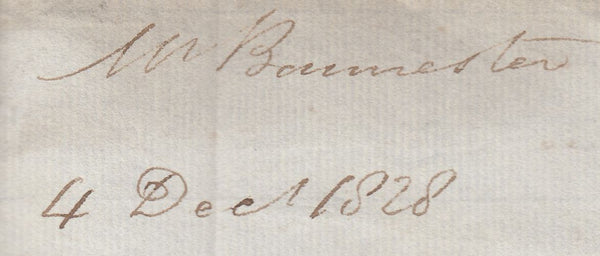 Mr Bournester
4 Decr 1828